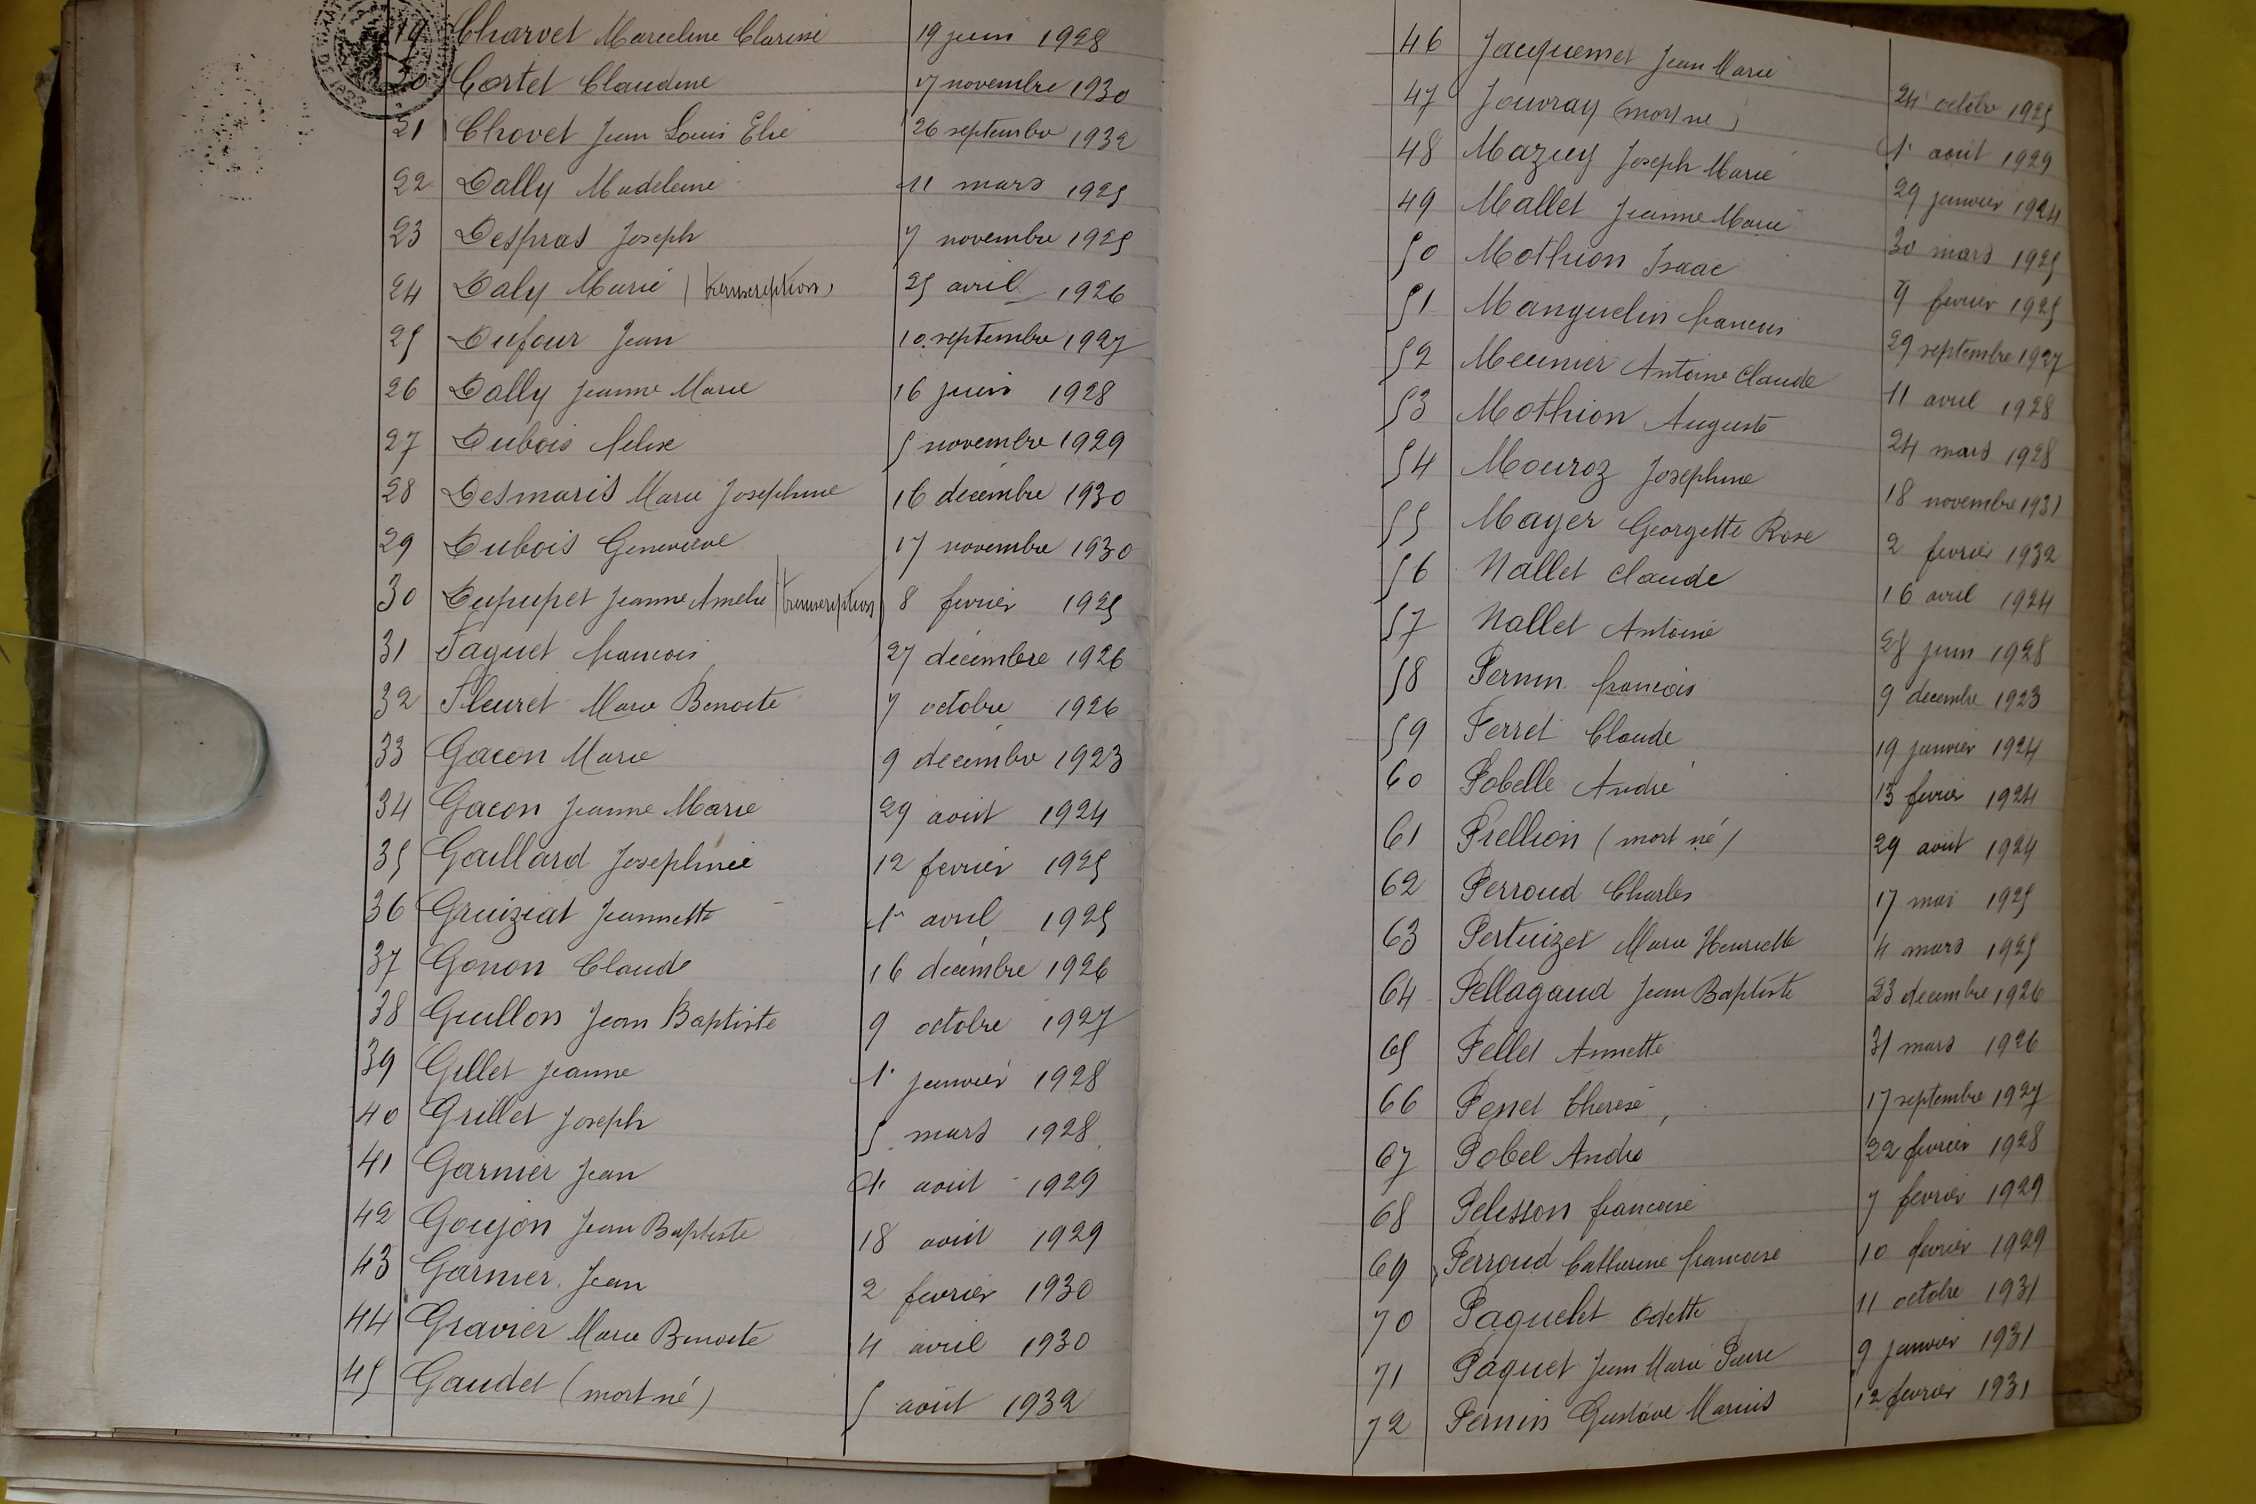 19 Charvet Marceline Clarisse 19 juin 1928
20 Cortet Claudine 17 novembre 1930
21 Chovet Jean Louis Elie 26 septembre 1932
22 Dally Madeleine 11 mars 1925
23 Despras Joseph 7 novembre 1925
24 Daly Marie (transcription) 25 avril 1926
25 Dufour Jean 10 septembre 1927
26 Dally Jeanne Marie 16 juin 1928
27 Dubois Felix 5 novembre 1929
28 Desmaris Marie Josephine 16 décembre 1930
29 Dubois Geneviève 17 novembre 1930
30 Dupupet Jeanne Amelie (transcription) 8 fevrier 1925
31 Faguet francois 27 décembre 1926
32 Fleuret Marie Benoite 7 octobre 1926
33 Gacon Marie 9 decembre 1923
34 Gacon Jeanne Marie 29 aout 1924
35 Gaillard Josephine 12 fevrier 1925
36 Gruiziat Jeannette 1r avril 1925
37 Gonon Claude 16 décembre 1926
38 Guillon Jean Baptiste 9 octobre 1927
39 Gillet Jeanne 1r janvier 1928
40 Grillet Joseph 5 mars 1928
41 Garnier Jean 1r aout 1929
42 Goujon Jean Baptiste 18 aout 1929
43 Garnier Jean 2 fevrier 1930
44 Gravier Marie Benoite 4 avril 1930
45 Gaudet (mort né) 5 aout 1932
46 Jacquemet Jean Marie 24 octobre 1925
47 Jouvray (mort né) 1r aout 1929
48 Mazuy Joseph Marie 29 janvier 1924
49 Mallet Jeanne Marie 30 mars 1925
50 Mothion Isaac 9 fevrier 1925
51 Manguelin francois 29 septembre 1927
52 Meunier Antoine Claude 11 avril 1928
53 Mothion Auguste 24 mars 1928
54 Mouroz Josephine 18 novembre 1931
55 Mayer Georgette Rose 2 fevrier 1932
56 Nallet Claude 16 avril 1924
57 Nallet Antoine 28 juin 1928
58 Pernin francois 9 decembre 1923
59 Perret Claude 19 janvier 1924
60 Pobelle André 13 fevrier 1924
61 Prellion (mort né) 29 aout 1924
62 Perroud Charles 17 mai 1925
63 Pertuizet Marie Henriette 4 mars 1925
64 Pellagaud Jean Baptiste 23 decembre 1926
65 Pellet Annette 31 mars 1926
66 Penet Therese 17 septembre 1927
67 Pobel Andre 22 fevrier 1928
68 Pelisson francoise 7 fevrier 1929
69 Perroud Catherine francoise 10 fevrier 1929
70 Paquelet Odette 11 octobre 1931
71 Paquet Jean Marie Pierre 9 janvier 1931
72 Pernin Gustave Marius 12 fevrier 1931